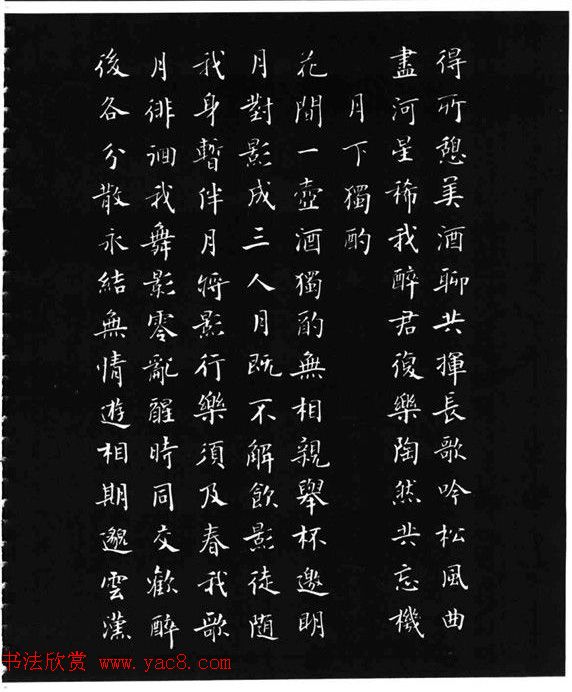 得所憩美酒聊共揮長歌吟松風曲
盡河星稀我醉君復樂陶然共忘機
月下獨酌
花間一壺酒獨酌無相親舉杯邀明
月對影成三人月既不解飲影徒隨
我身暫伴月將影行樂須及春我歌
月徘徊我舞影零亂醒時同交歡醉
後各分散永結無情遊相期邈雲漢
书法欣赏 www.yac8.com